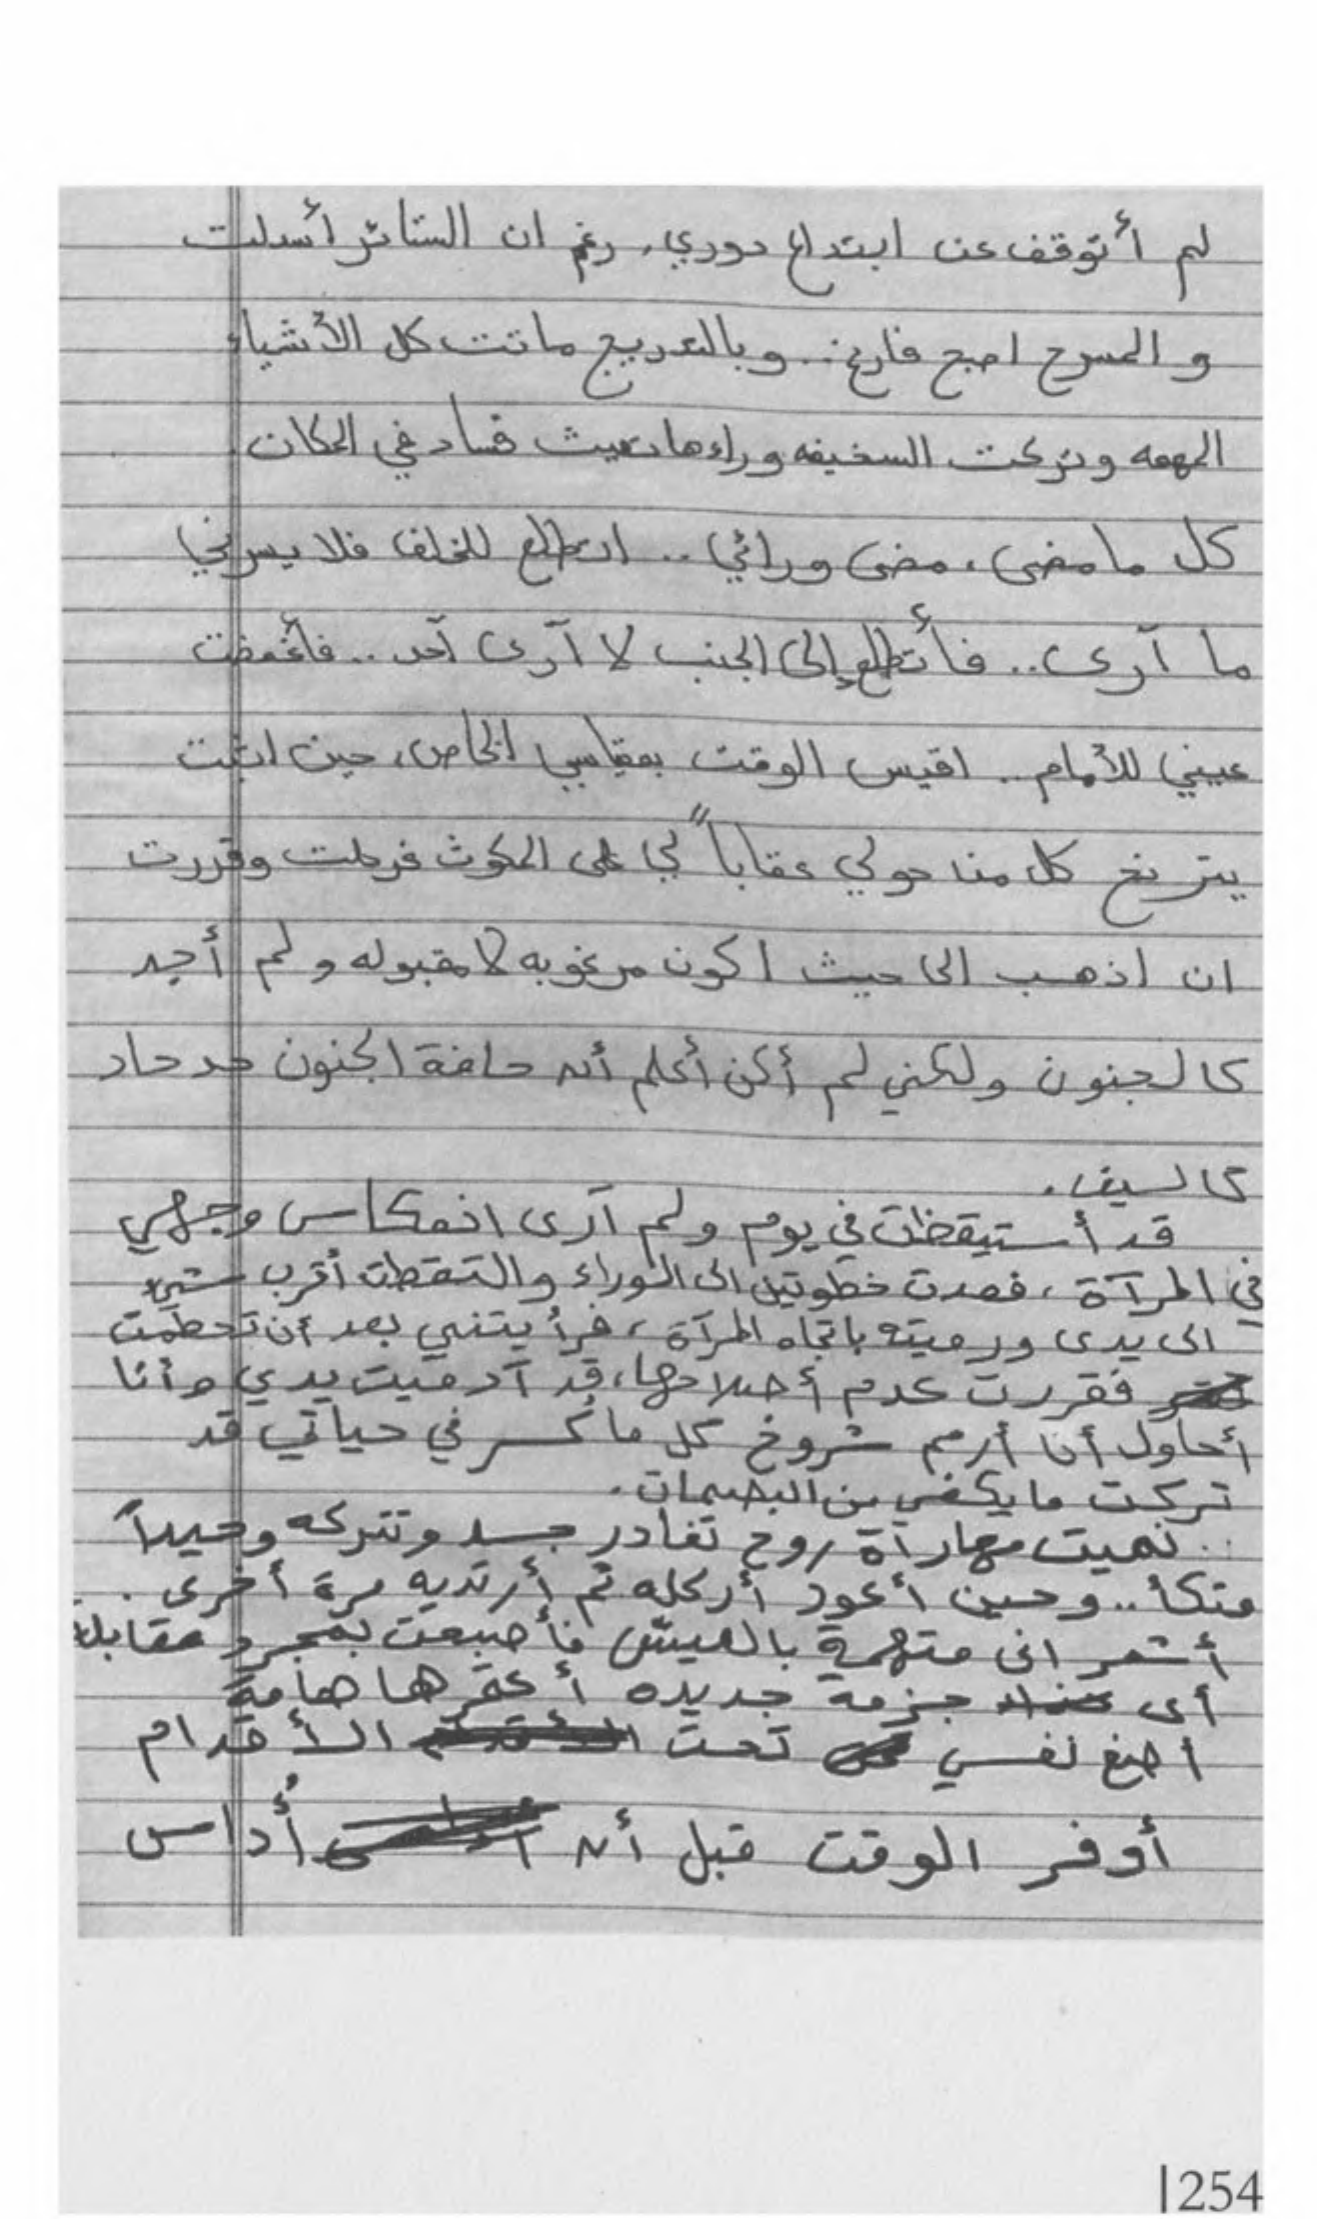 لم أتوقف عن ابتداع دوري، رغم ان الستائر أسدلت
و المسرح اصبح فارغ.. وبالتدريج ماتت كل الأشياء
المهمه وتركت السخيفه وراءها تعيث فساد في المكان.
كل ما مضى، مضى ورائي.. اتطلع للخلف فلا يسرني
ما آرى.. فأتطلع إلى الجنب لا آرى آحد.. فأغمضت
عيني للأمام.. اقيس الوقت بمقياسي الخاص، حين اثبت
يترنح كل من حولي عقاباً لي على المكوث فرحلت وقررت
ان اذهب الى حيث اكون مرغوبه لا مقبوله و لم أجد
كالجنون ولكني لم أكن أعلم أن حافة الجنون حد حاد
كالسيف.
قد أستيقظت في يوم ولم آرى انعكاس وجهي
في المرآة، فعدت خطوتين الى الوراء والتقطت أقرب شيء
الى يدى ورميته باتجاه المرآة، فرأيتني بعد أن تحطمت
فقررت عدم أصلاحها، قد آدميت يدي وأنا
أحاول أن أرمم شروخ كل ما كُسر في حياتي قد
تركت ما يكفي من البصمات.
.. نميت مهارآة روح تغادر جسد وتتركه وحيداً
متكأ.. وحين أعود أركله ثم أرتديه مرة أخرى.
أشعر انى متهمة بالعيش فأصبحت بمجرد مقابلة
أى جزمة جديده أعتبرها هامة
اضع نفسي تحت الأقدام
أوفر الوقت قبل أن أُداس
254